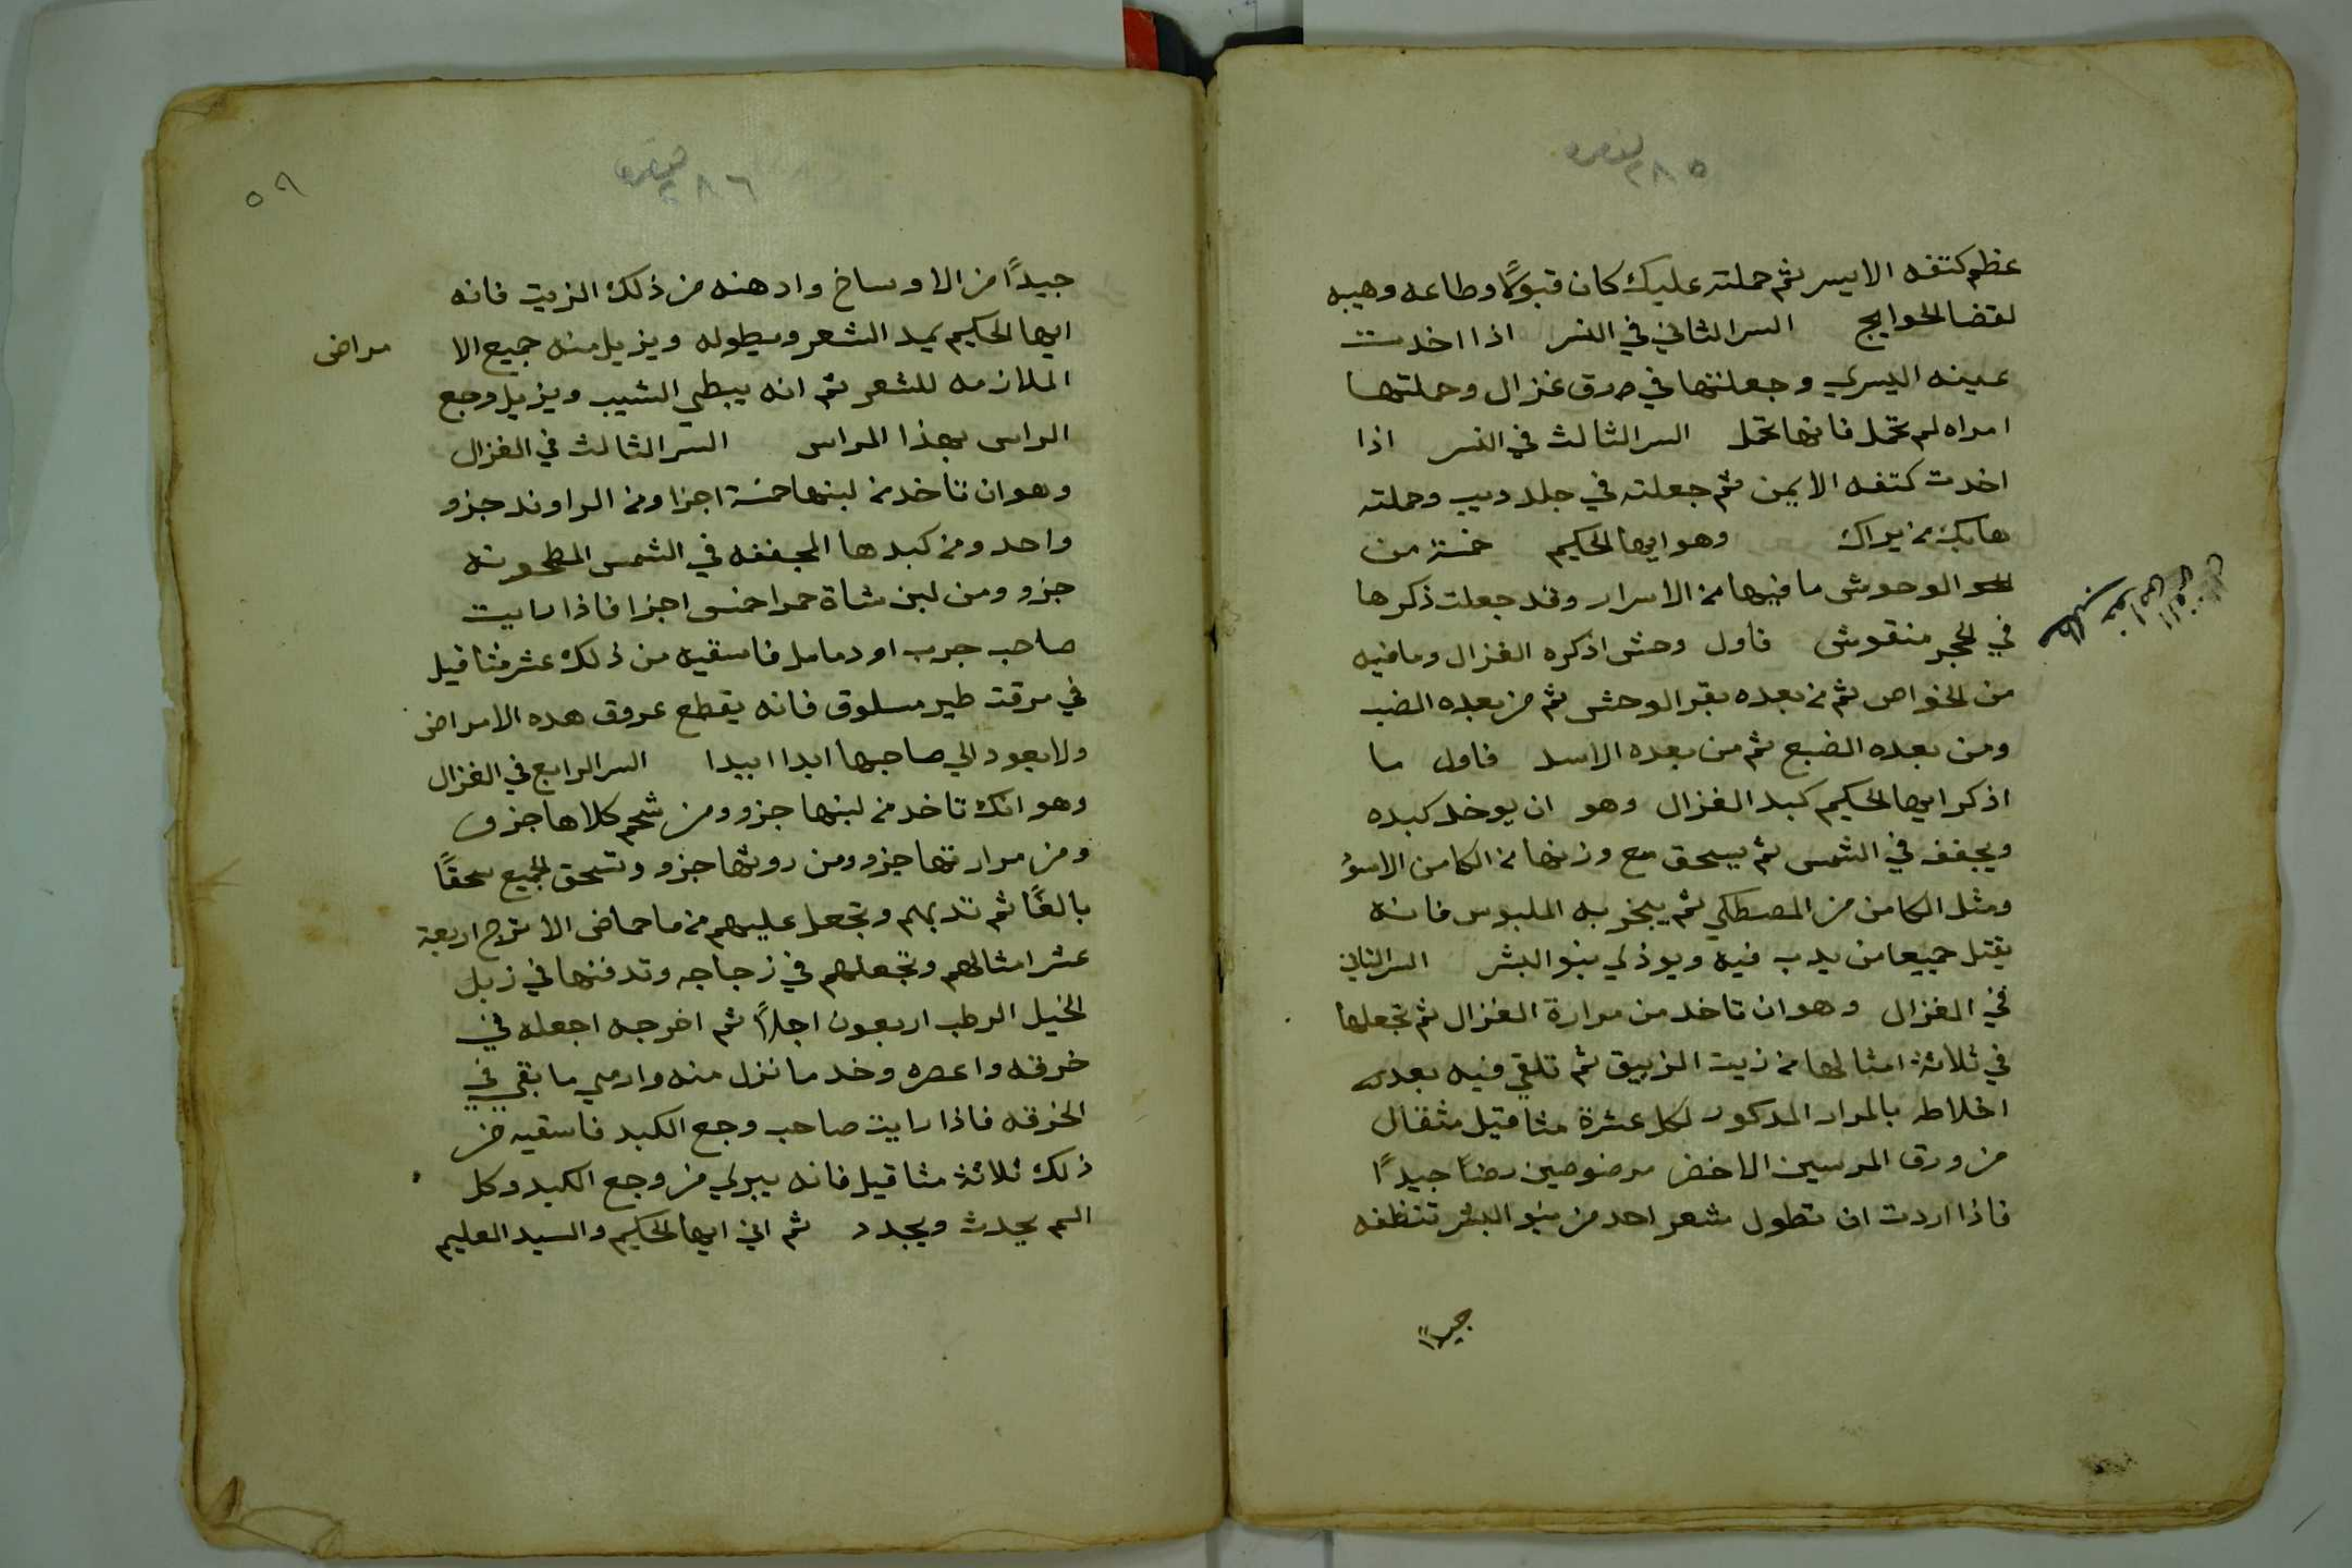 ٢٨٥
عظم كتفه الايسر ثم حملته عليك كان قبولًا وطاعه وهيبه
لقضا الحوايج السر الثاني في النسر اذا اخدت
عينه اليسري وجعلتها في ورق غزال وحملتها
امراه لم تحمل فانها تحمل السر الثالث في النسر اذا
اخدت كتفه الايمن ثم جعلته في جلد ديب وحملته
هابك من يراك وهو ايها الحكيم خمسة من
الوحوش ما فيها من الاسرار وقد جعلت ذكرها
في الحجر منقوش فاول وحش اذكره الغزال وما فيه
من الخواص ثم من بعده بقر الوحش ثم من بعده الضب
ومن بعده الضبع ثم من بعده الاسد فاول ما
اذكر ايها الحكيم كبد الغزال وهو ان يوخد كبده
ويجفف في الشمس ثم يسحق مع وزنها من الكامن الاسود
ومثل الكامن من المصطكي ثم يبخر به الملبوس فانه
يقتل جميعا من يدب فيه ويوذي بنو البشر السر الثاني
في الغزال وهو ان تاخد من مرارة الغزال ثم تجعلها
في ثلاثة امثالها من زيت الزيبق ثم تلقي فيه بعد
اخلاطه بالمرار المدكور لكل عشرة مثاقيل مثقال
من ورق المرسين الاخضر مرضوضين رضًا جيدًا
فاذا اردت ان تطول شعر احد من بنو البشر تنظفه
جيدًا
٢٨٦
٥٩
جيدًا من الاوساخ وادهنه من ذلك الزيت فانه
ايها الحكيم يمد الشعر ويطوله ويزيل منه جميع الا مراض
الملازمه للشعر ثم انه يبطي الشيب ويزيل وجع
الراس بهذا المراس السر الثالث في الغزال
وهو ان تاخد من لبنها خمسة اجزا ومن الراوند جزو
واحد ومن كبدها المجففه في الشمس المطحونه
جزو ومن لبن شاة حمرا خمس اجزا فاذا رايت
صاحب جرب او دمامل فاسقيه من ذلك عشر مثاقيل
في مرقت طير مسلوق فانه يقطع عروق هده الامراض
ولا يعود الي صاحبها ابدا ابيدا السر الرابع في الغزال
وهو انك تاخد من لبنها جزو ومن شحم كلاها جزو
ومن مرارتها جزو ومن روثها جزو وتسحق الجميع سحقًا
بالغًا ثم تدبهم وتجعل عليهم من ما حماض الاترج اربعة
عشر امثالهم وتجعلهم في زجاجه وتدفنها في زبل
الخيل الرطب اربعون اجلًا ثم اخرجه اجعله في
خرقه واعصره وخد ما نزل منه وارمي ما بقي في
الخرقه فاذا رايت صاحب وجع الكبد فاسقيه من
ذلك ثلاثة مثاقيل فانه يبري من وجع الكبد وكل
الم يحدث ويجدد ثم اني ايها الحكيم والسيد العليم